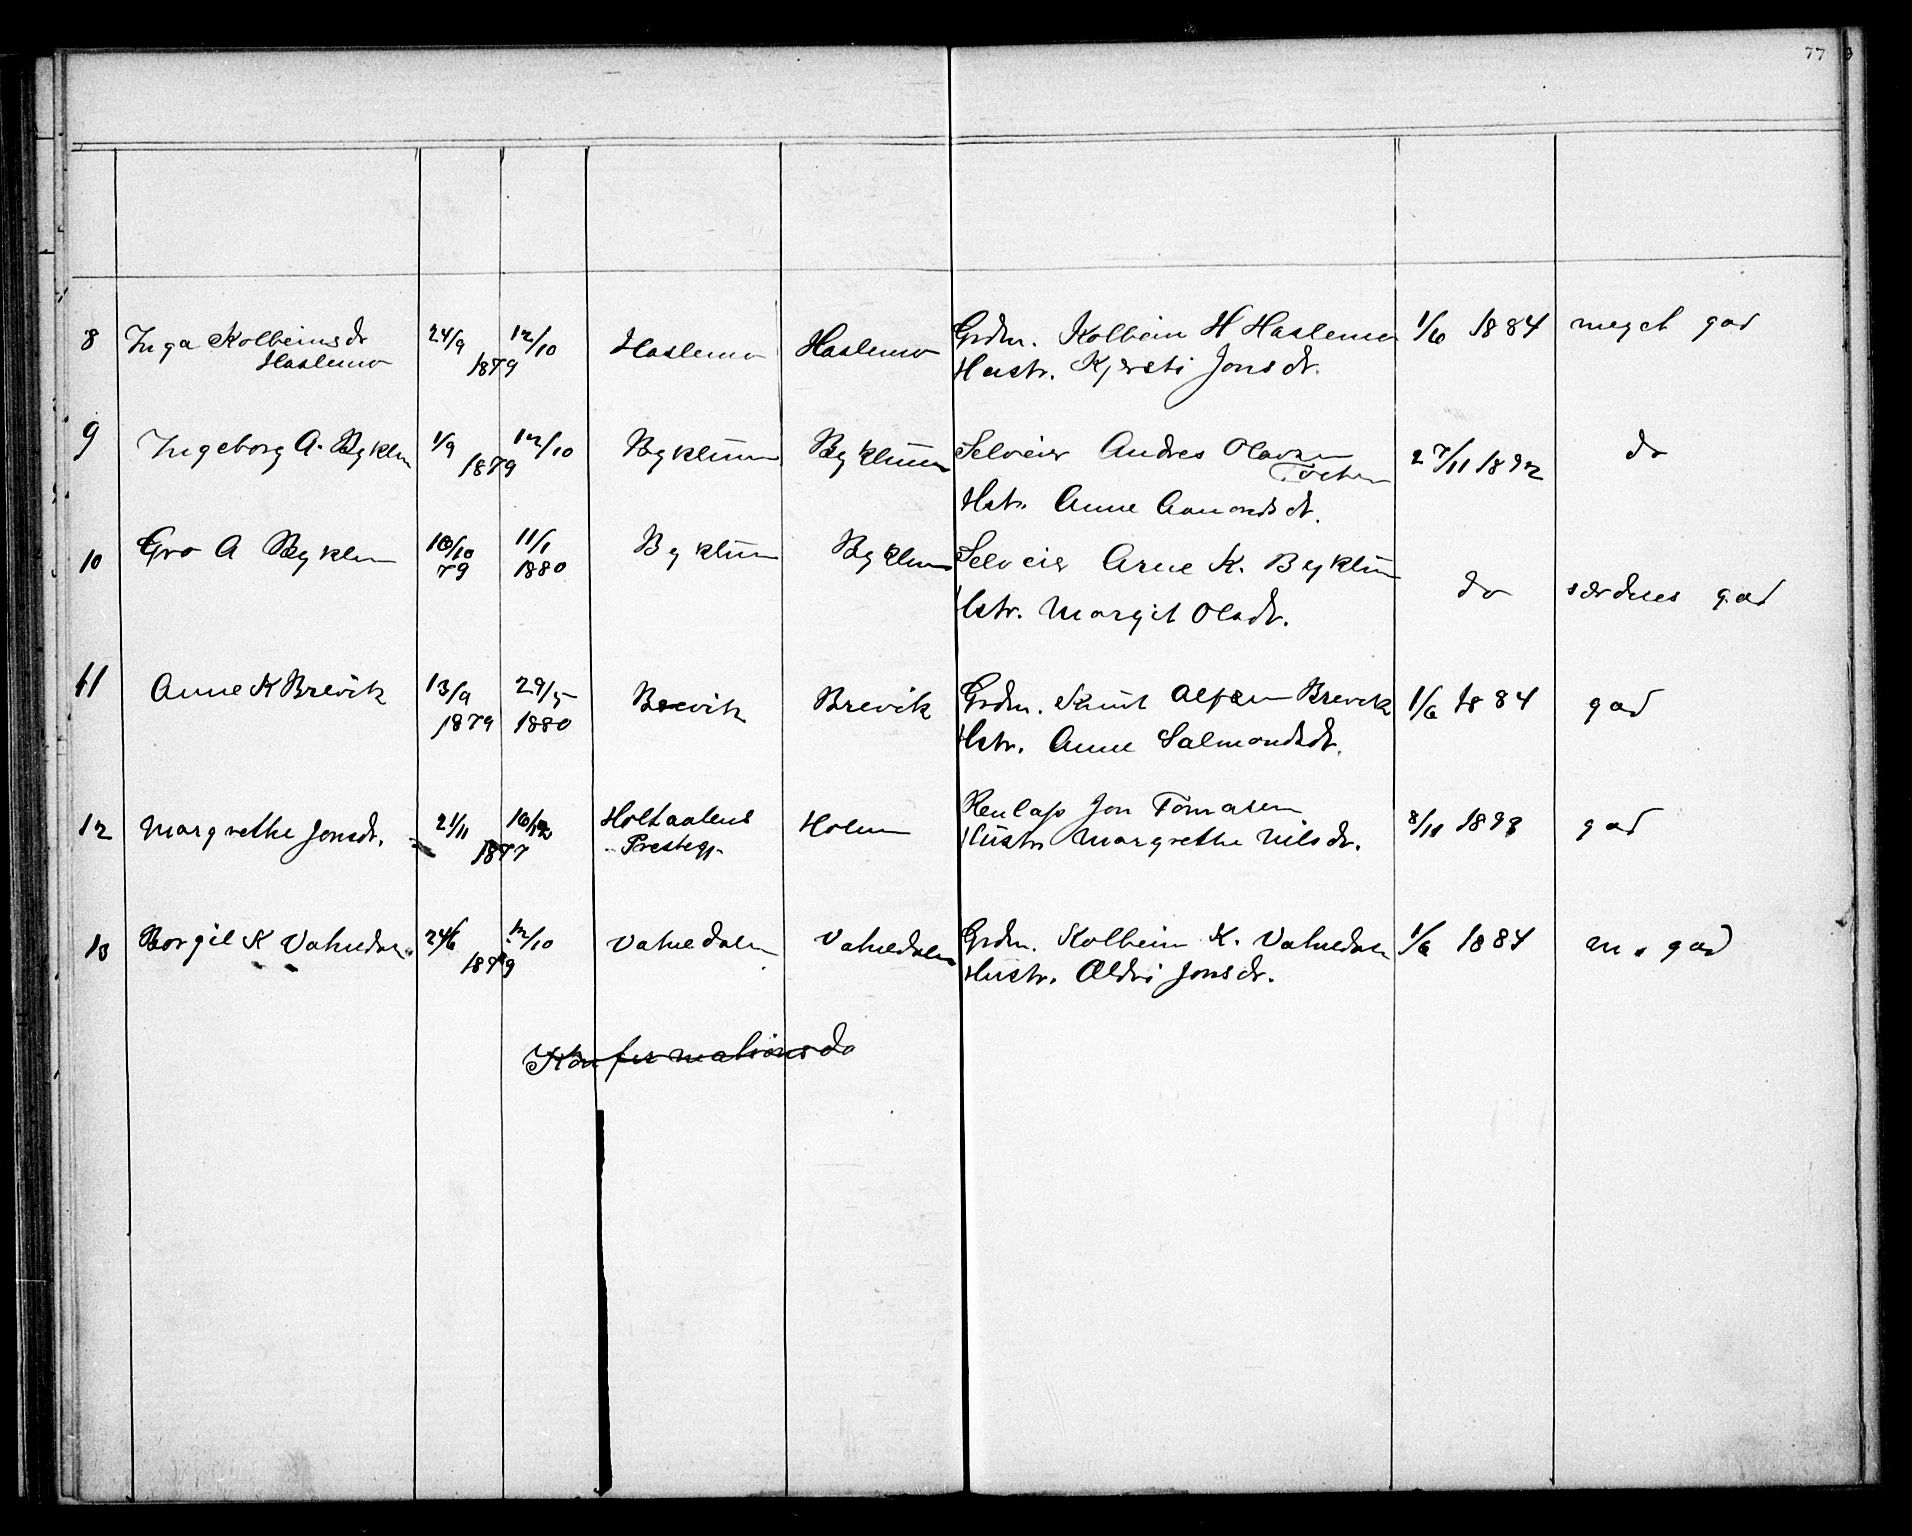 77
8 Inga Kolbeinsdr 24/9 12/10 Haslemo Haslemo Grdm. Kolbein H Haslemo 1/6 1884 meget god
Haslemo 1879 Hustr. Kjersti Jonsdr.
9 Ingeborg A. Byklum 1/9 12/10 Byklum Byklum Selveier Andres Olavsen 27/11 1892 do
1879
Hstr. Anne Aamondsdr.
10 Gro A Byklum 10/10 11/1 Byklum Byklum Selveier Arne K. Byklum do særdeles god
79 1880 Hstr. Margit Olsdr.
11 Anne K Brevik 13/9 29/5 Brevik Brevik Grdm. Knut Alfsen Brevik 1/6 1884 god
1879 1880 Hstr. Anne Salmondsdr.
12 Margrethe Jonsdr. 21/11 Holtaalens Holm Renlap Jon Tomasen 8/11 1893 god
1877 Prestegj. Hustr. Margrethe Nilsdr.
13 Borgil K Vatnedalen 24/6 12/10 Vatnedalen Vatnedalen Grdm. Kolbein K. Vatnedalen 1/6 1884 m. god
1879 Hustr. Oldri Jonsdr.
Konfirmationsdo